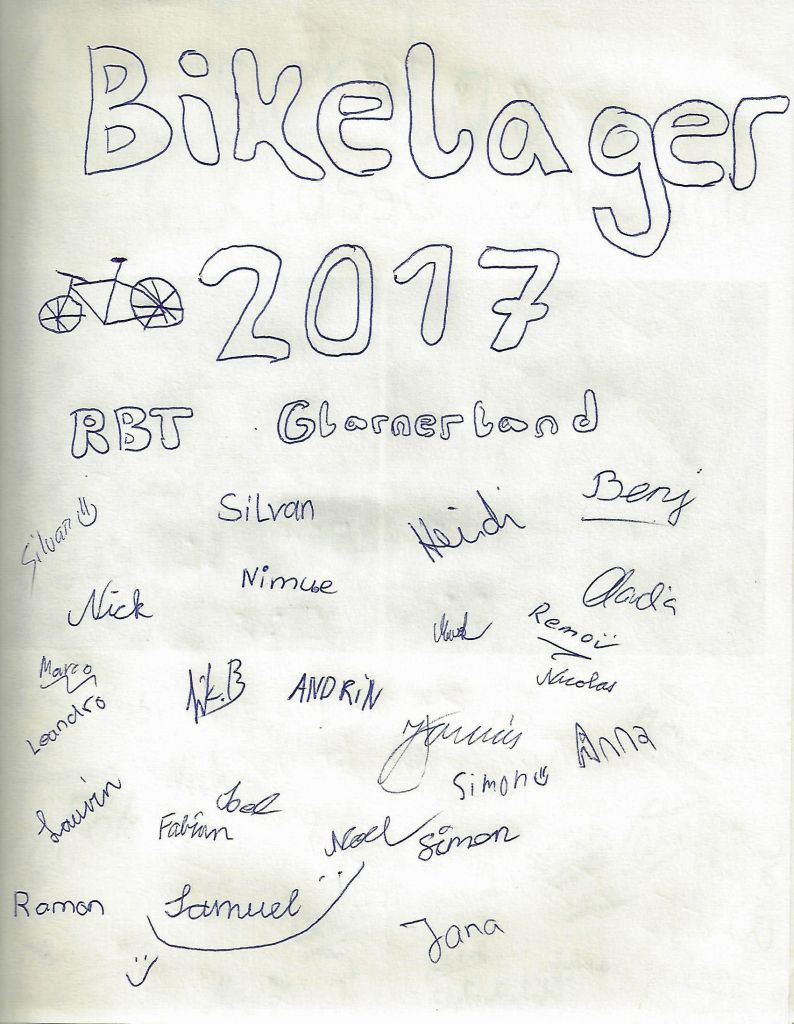 Bikelager
2017
RBT Glarnerland
Silvan
Silvan
Heidi
Benj
Nick
Nimue
Remo
Nicolas
Marco
Leandro
ANDRIN
Jannis
Anna
Simon
Laurin
Fabian
Joel
Noel
Simon
Ramon
Samuel
Jana